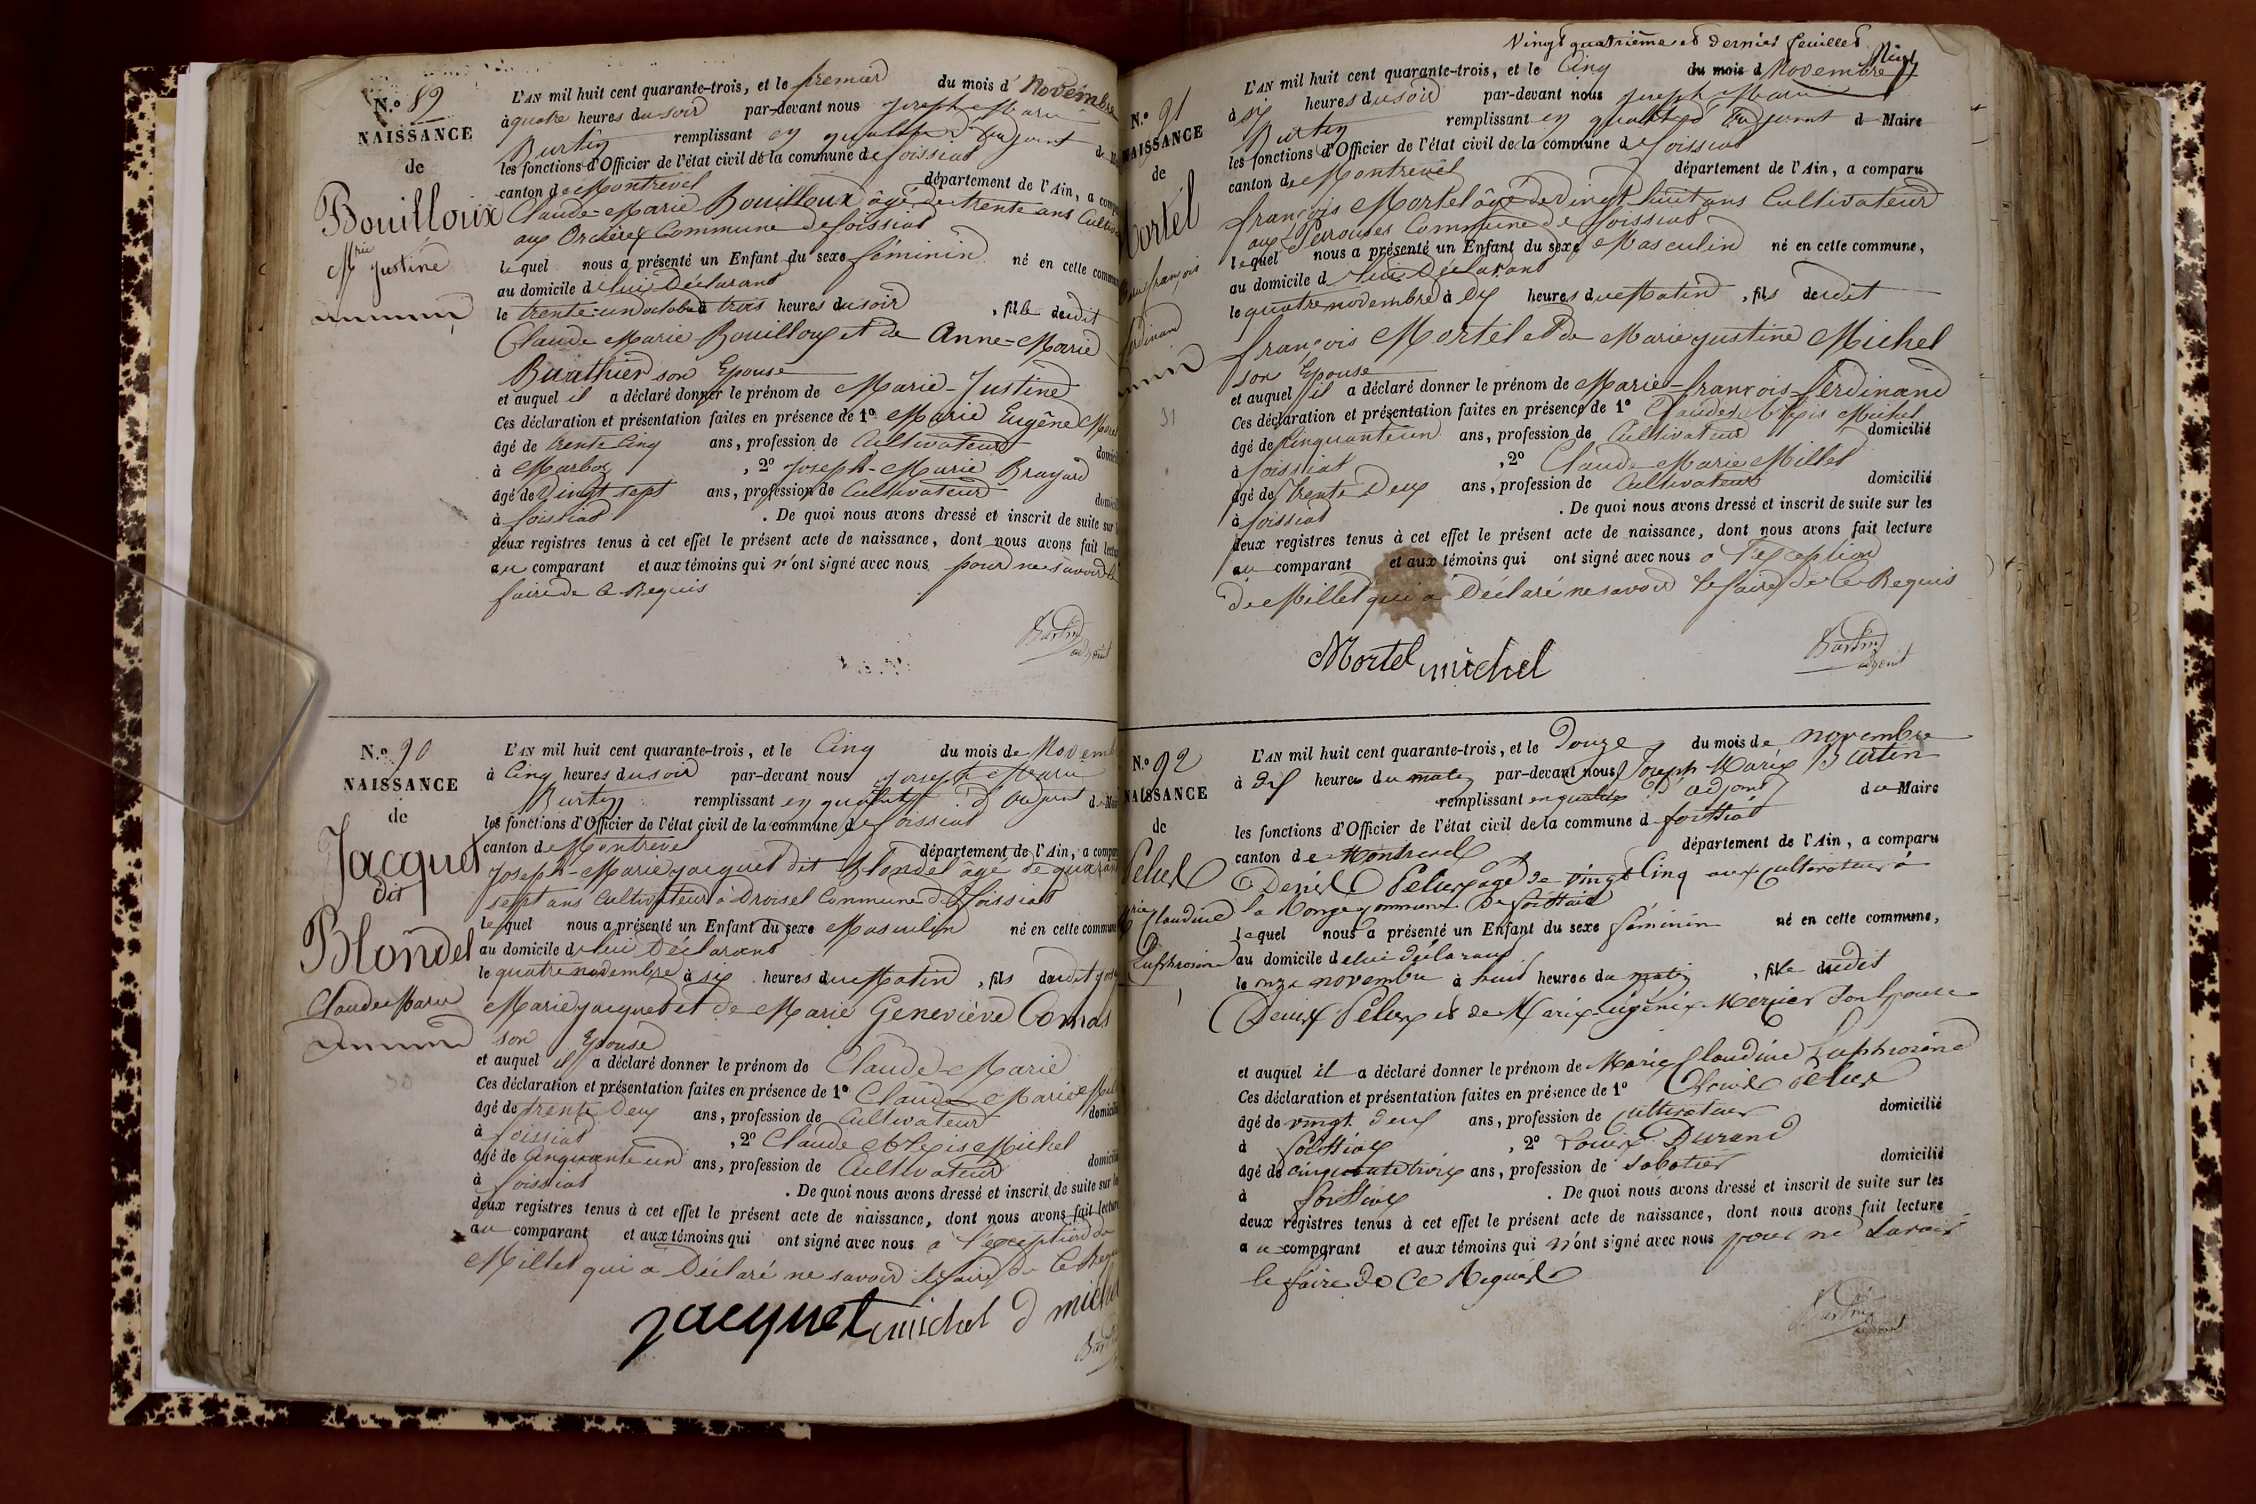 N.o 89
NAISSANCE
de
Bouilloux
Mrie Justine
L'AN mil huit cent quarante-trois, et le premier du mois d' Novembre
à quatre heures du soir par-devant nous Joseph Marie
Burtin remplissant en qualité d'adjoint de
les fonctions d'Officier de l'état civil de la commune de foissiat
canton de Montrevel département de l'Ain, a
Claude-Marie Bouilloux âgé de trente ans
aux Orcières Commune de foissiat
lequel nous a présenté un Enfant du sexe féminin né en cette commune
au domicile de lui Déclarant
le trente-un octobre à trois heures du soir, fille dudit
Claude Marie Bouilloux et de Anne-Marie
Buathier son Epouse
et auquel il a déclaré donner le prénom de Marie-Justine
Ces déclaration et présentation faites en présence de 1o Marie Eugêne
âgé de trente cinq ans, profession de Cultivateur
à Marboz, 2o Joseph-Marie Brayard
âgé de vingt sept ans, profession de Cultivateur
à foissiat. De quoi nous avons dressé et inscrit de suite sur
deux registres tenus à cet effet le présent acte de naissance, dont nous avons fait lecture
au comparant et aux témoins qui n'ont signé avec nous pour ne savoir le
faire de ce Requis
Burtin
adjoint
N.o 90
NAISSANCE
de
Jacquet
dit
Blondel
Claude Marie
L'AN mil huit cent quarante-trois, et le Cinq du mois de Novemb
à Cinq heures du soir par-devant nous Joseph Marie
Burtin remplissant en qualité d'adjoint de
les fonctions d'Officier de l'état civil de la commune de foissiat
canton de Montrevel département de l'Ain, a compa
Joseph-Marie jacquet dit Blondel âgé de quarante
sept ans Cultivateur à Droisel Commune de foissiat
lequel nous a présenté un Enfant du sexe Masculin né en cette commune
au domicile de lui Déclarant
le quatre novembre à six heures du Matin, fils dudit
Marie jacquet et de Marie Geneviève Comas
son Epouse
et auquel il a déclaré donner le prénom de Claude-Marie
Ces déclaration et présentation faites en présence de 1o Claude Marie
âgé de trente Deux ans, profession de Cultivateur
à foissiat, 2o Claude Alexis Michel
âgé de Cinquante un ans, profession de Cultivateur
à foissiat. De quoi nous avons dressé et inscrit de suite sur
deux registres tenus à cet effet le présent acte de naissance, dont nous avons fait lecture
au comparant et aux témoins qui ont signé avec nous à l'exception de
Millet qui a Déclaré ne savoir le faire de Ce
jacquet michel
Vingt quatrième et dernier feuillet
N.o 91
NAISSANCE
de
Mortel
L'AN mil huit cent quarante-trois, et le Cinq du mois d Novembre
à six heures du soir par-devant nous Joseph Marie
Burtin remplissant en qualité d'adjoint d Maire
les fonctions d'Officier de l'état civil de la commune de foissiat
canton de Montrevel département de l'Ain, a comparu
françois Mortel âgé de Vingt huit ans Cultivateur
aux Perouses Commune de foissiat
lequel nous a présenté un Enfant du sexe Masculin né en cette commune,
au domicile d lui Déclarant
le quatre novembre à dix heures du Matin, fils dudit
françois Mortel et de Marie justine Michel
son Epouse
et auquel il a déclaré donner le prénom de Marie-françois-ferdinand
Ces déclaration et présentation faites en présence de 1o Claude Alexis Michel
âgé de Cinquante un ans, profession de Cultivateur domicilié
à foissiat, 2o Claude Marie Millet
âgé de trente Deux ans, profession de Cultivateur domicilié
à foissiat. De quoi nous avons dressé et inscrit de suite sur les
deux registres tenus à cet effet le présent acte de naissance, dont nous avons fait lecture
au comparant et aux témoins qui ont signé avec nous à l'exception
de Millet qui a Déclaré ne savoir le faire de Ce Requis
Mortel michel
Burtin
adjoint
N.o 92
NAISSANCE
de
Pelux
Mrie Claudine
Euphrosine
L'AN mil huit cent quarante-trois, et le Douze du mois de novembre
à dix heures du matin par-devant nous Joseph Marie Burtin
remplissant en qualité d'adjoint du Maire
les fonctions d'Officier de l'état civil de la commune d foissiat
canton de Montrevel département de l'Ain, a comparu
Denis Pelux âgé de vingt Cinq ans cultivateur à
la commune de foissiat
lequel nous a présenté un Enfant du sexe féminin né en cette commune,
au domicile de lui déclarant
le onze novembre à huit heures du matin, fille dudit
Denis Pelux et de Marie Eugénie Mercier son Epouse
et auquel il a déclaré donner le prénom de Marie Claudine Euphrosine
Ces déclaration et présentation faites en présence de 1o Pelux
âgé de vingt deux ans, profession de cultivateur domicilié
à foissiat, 2o Louis Durand
âgé de cinquante trois ans, profession de sabotier domicilié
à foissiat. De quoi nous avons dressé et inscrit de suite sur les
deux registres tenus à cet effet le présent acte de naissance, dont nous avons fait lecture
au comparant et aux témoins qui n'ont signé avec nous pour ne savoir
le faire de Ce Requis
Burtin
adjoint